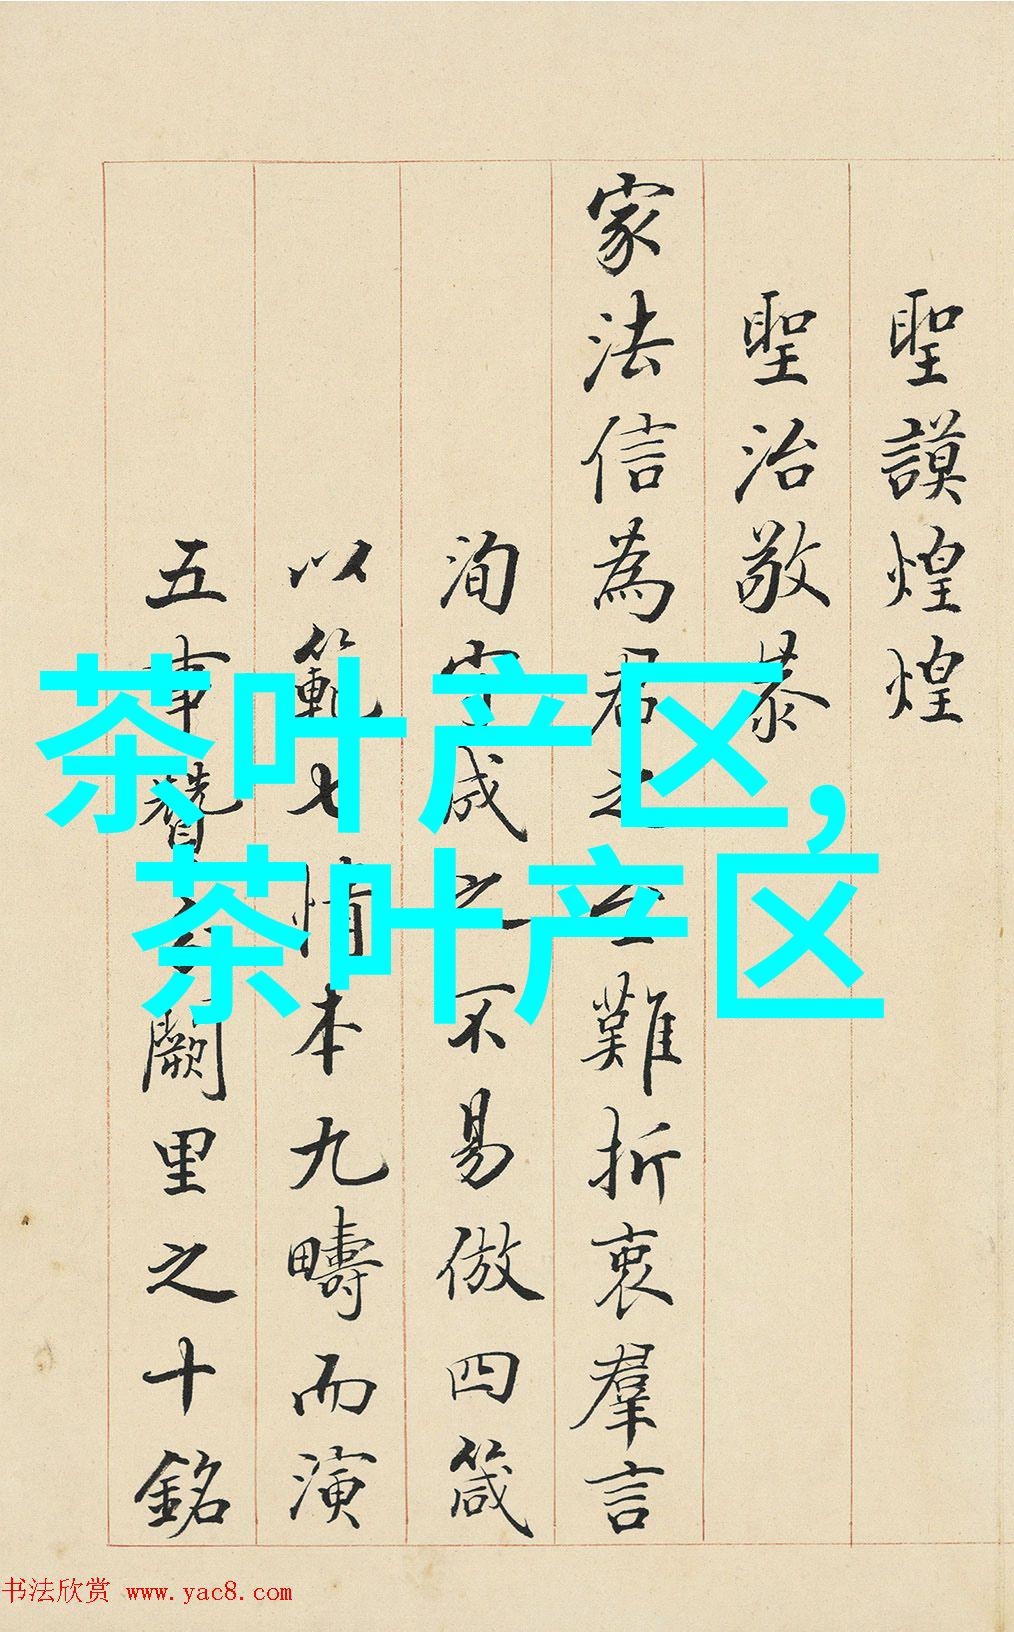 聖謨煌煌
聖治敬恭
家法信為君之難折衷羣言
洵守成之不易倣四箴
以範七情本九疇而演
五事贊闕里之十銘
茶叶产区,
茶叶产区
书法欣赏 www.yac8.com